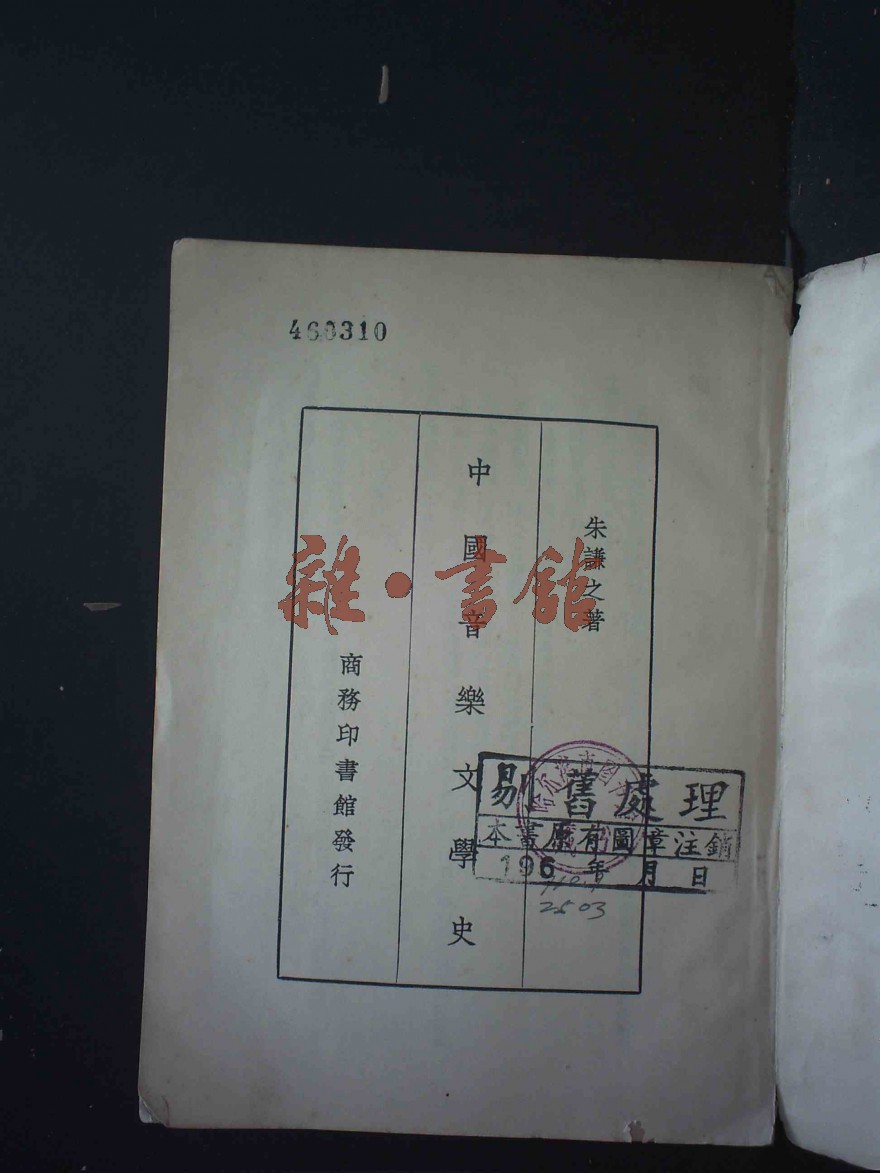 460310
朱謙之著
中國音樂文學史
商務印書館發行
雜·書館
剔舊處理
本書原有圖章注銷
196 年 月 日
2503